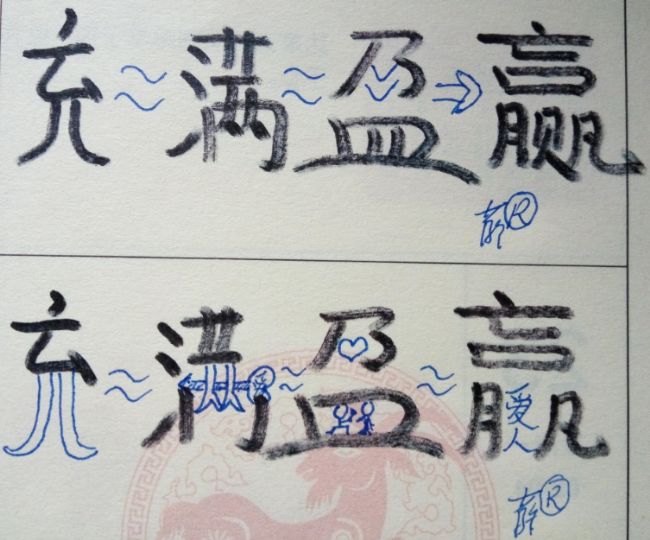 充≈满≈盈⇒赢
®
充≈满≈盈≈赢
爱
人
®